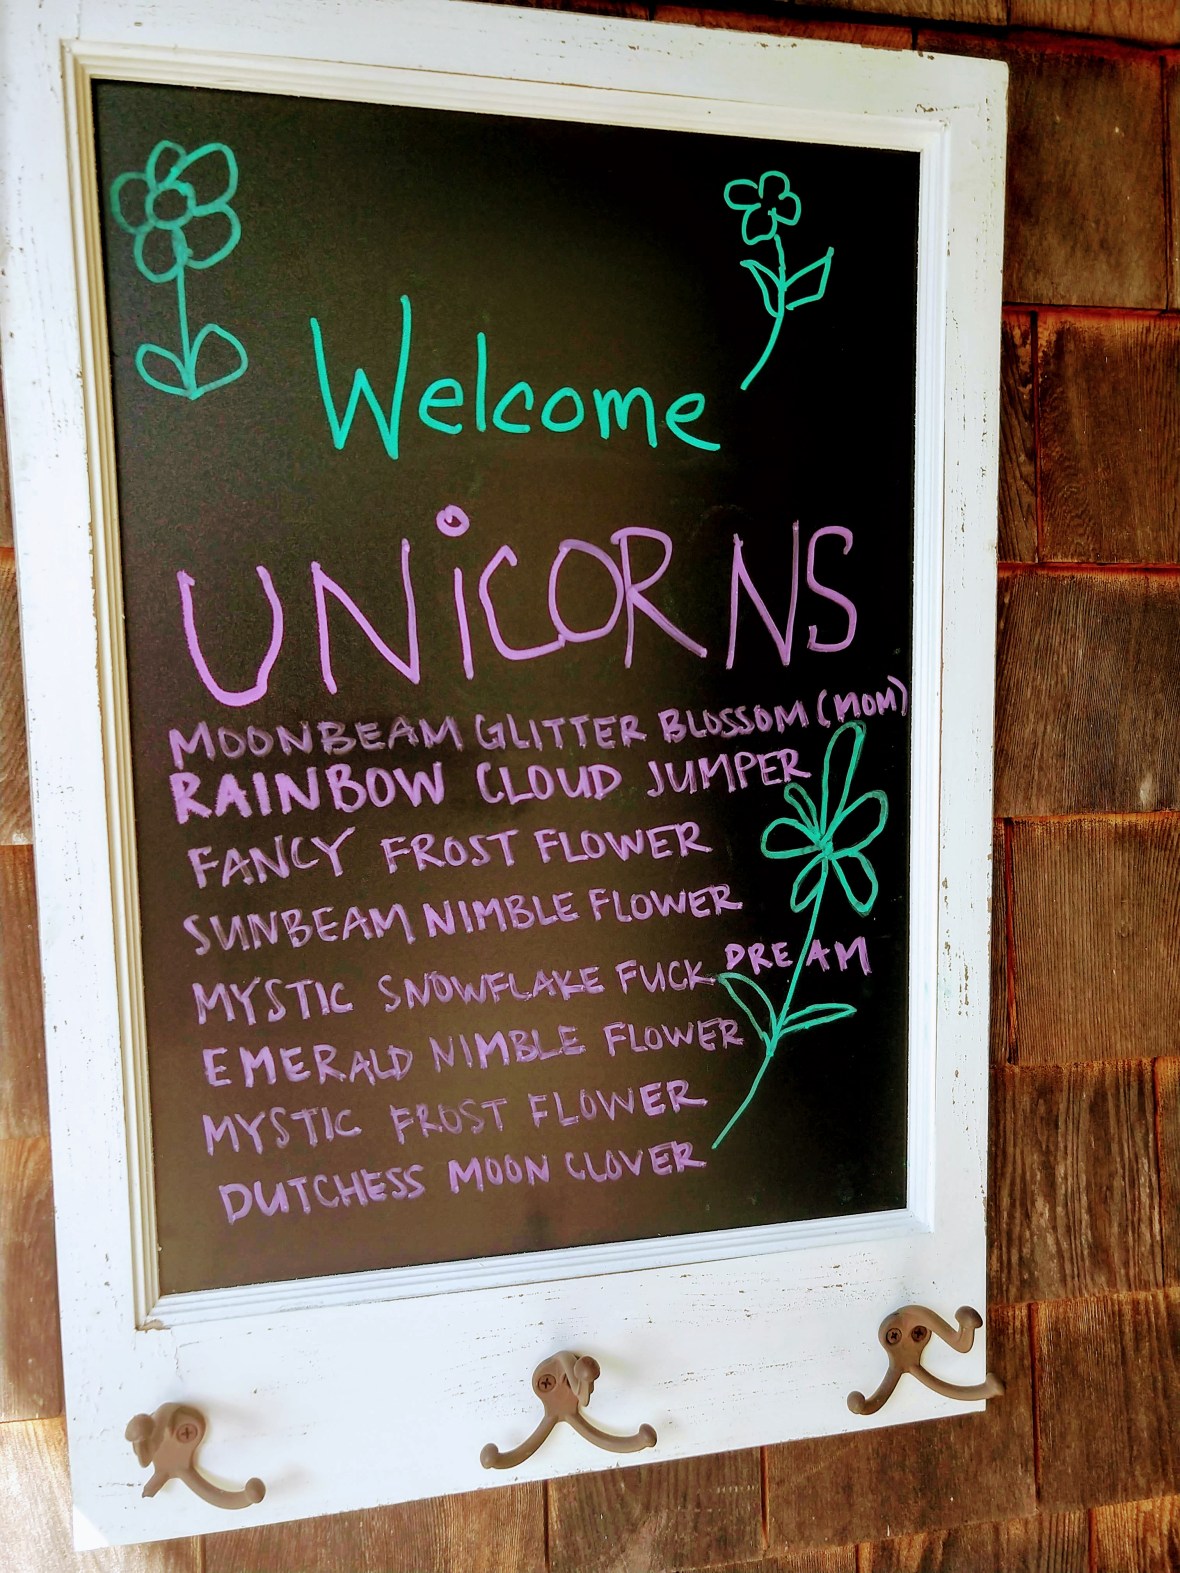 Welcome
UNiCORNS
MOONBEAM GLITTER BLOSSOM (MOM)
RAINBOW CLOUD JUMPER
FANCY FROST FLOWER
SUNBEAM NIMBLE FLOWER
MYSTIC SNOWFLAKE FUCK DREAM
EMERALD NIMBLE FLOWER
MYSTIC FROST FLOWER
DUTCHESS MOON CLOVER